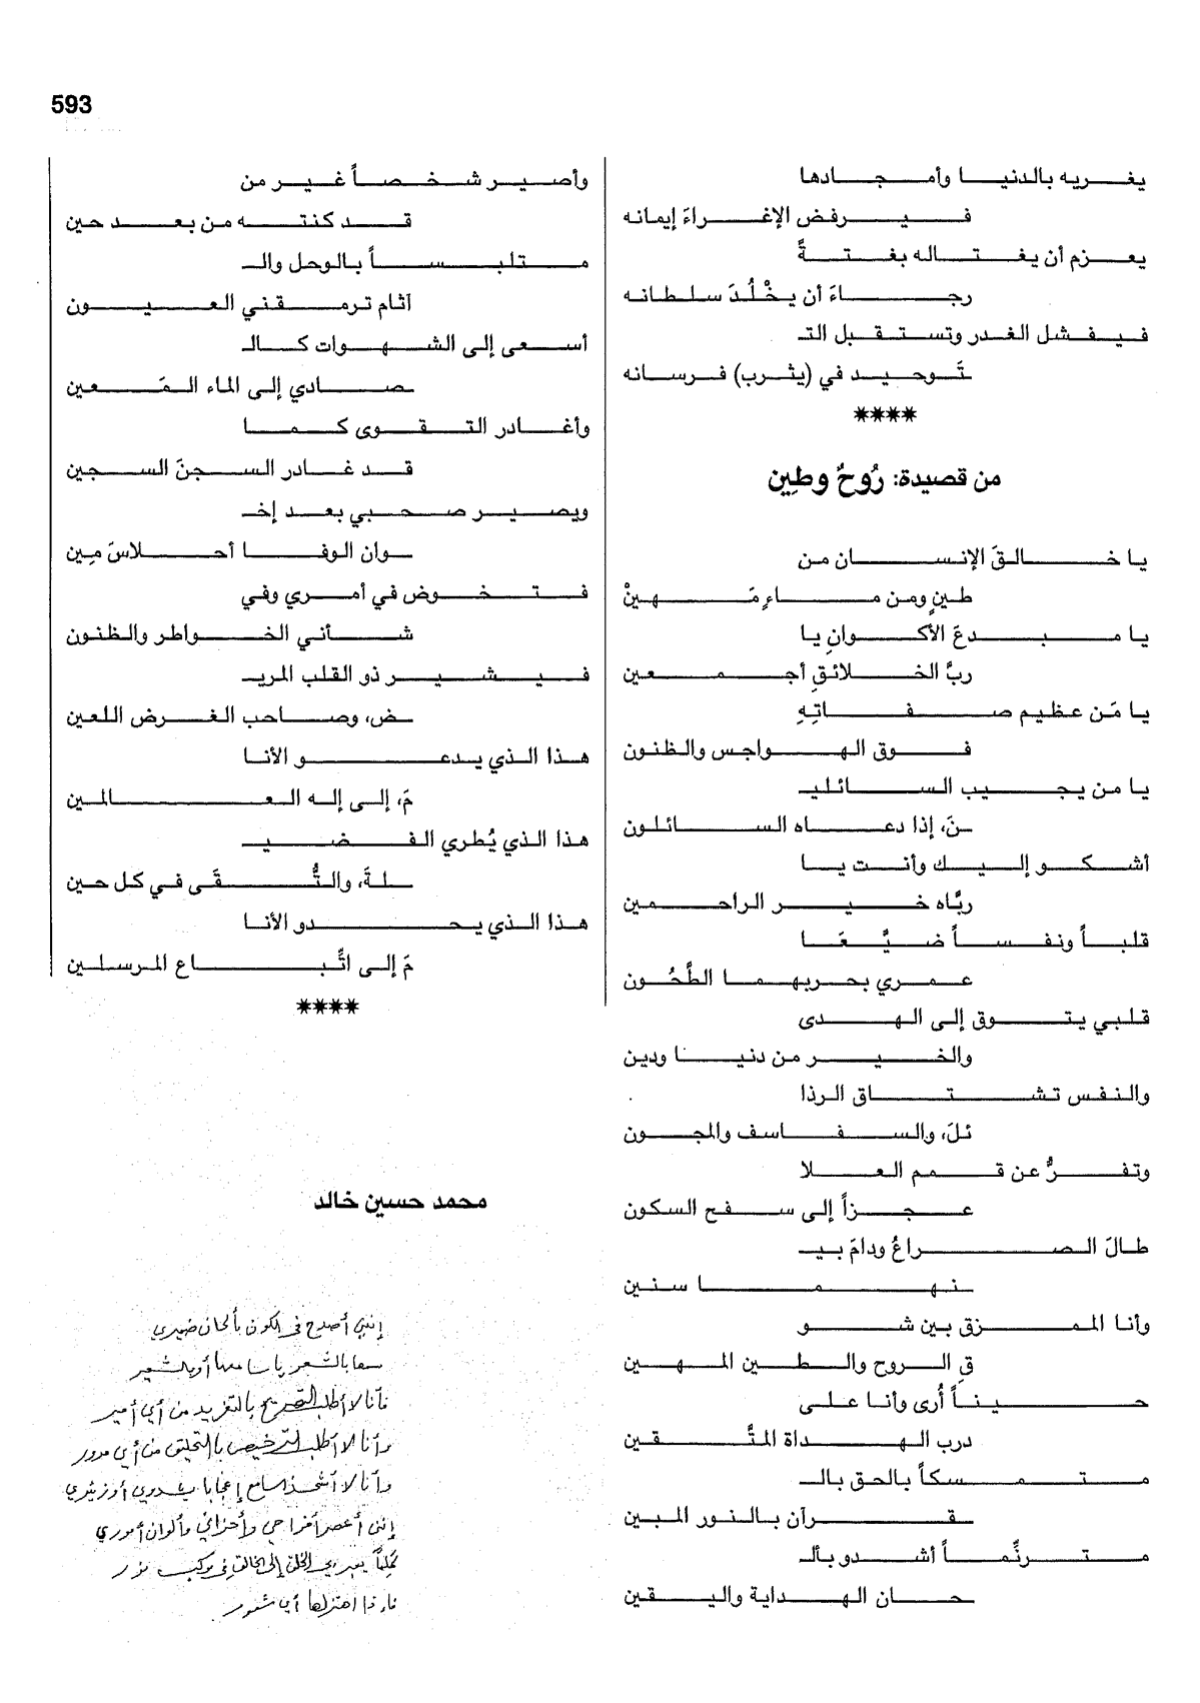 593
يغريه بالدنيا وأمجادها
فيرفض الإغراءَ إيمانه
يعزم أن يغتاله بغتةً
رجاءَ أن يخْلُدَ سلطانه
فيفشل الغدر وتستقبل التـ
تَّوحيد في (يثرب) فرسانه
****
من قصيدة: رُوحٌ وطِين
يا خالقَ الإنسان من
طينٍ ومن ماءٍ مَهينْ
يا مبدعَ الأكوانِ يا
ربَّ الخلائقِ أجمعين
يا مَن عظيم صفاتِهِ
فوق الهواجس والظنون
يا من يجيب السائليـ
ـنَ، إذا دعاه السائلون
أشكو إليك وأنت يا
ربَّاه خير الراحمين
قلباً ونفساً ضيَّعَا
عمري بحربهما الطَّحُون
قلبي يتوق إلى الهدى
والخير من دنيا ودين
والنفس تشتاق الرذا
ئلَ، والسفاسف والمجون
وتفرُّ عن قمم العلا
عجزاً إلى سفح السكون
طالَ الصراعُ ودامَ بيـ
ـنهما سنين
وأنا الممزق بين شو
قِ الروح والطين المهين
حيناً أُرى وأنا على
درب الهداة المتَّقين
متمسكاً بالحق بالـ
ـقرآن بالنور المبين
مترنِّماً أشدو بألـ
حان الهداية واليقين
وأصير شخصاً غير من
قد كنته من بعد حين
متلبساً بالوحل والـ
آثام ترمقني العيون
أسعى إلى الشهوات كالـ
ـصادي إلى الماء المَعين
وأغادر التقوى كما
قد غادر السجنَ السجين
ويصير صحبي بعد إخـ
ـوان الوفا أحلاسَ مِين
فتخوض في أمري وفي
شأني الخواطر والظنون
فيشير ذو القلب المريـ
ـض، وصاحب الغرض اللعين
هذا الذي يدعو الأنا
مَ، إلى إله العالمين
هذا الذي يُطري الفضيـ
ـلةَ، والتُّقَى في كل حين
هذا الذي يحدو الأنا
مَ إلى اتِّباع المرسلين
****
محمد حسين خالد
إنني أصدح في الكون بألحان ضميري
فأنا لا أطلب التصريح بالتغريد من أي أمير
وأنا لا أطلب الترخيص بالتحليق من أي مدير
وأنا لا أشحذ سامع إعجابا
إنني أعصر أفراحي وأحزاني وألوان أموري
الخلق إلى الخالق في موكب نور
فإذا اهتز لها أي شعور